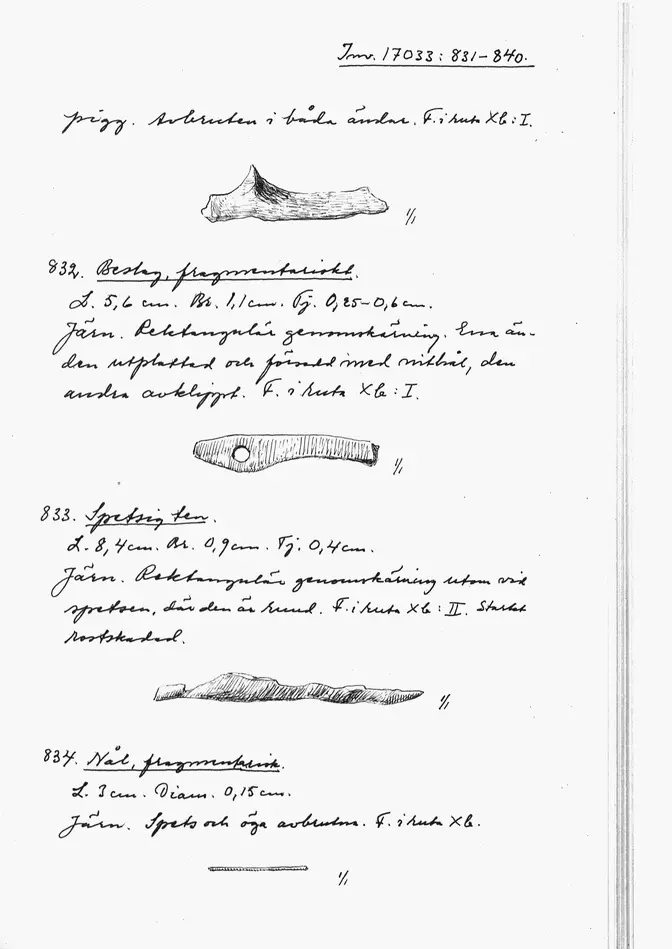 Inv. 17033: 831–840.
pigg. Avbruten i båda ändar. F. i ruta Xb: I.
1/1
832. Beslag, fragmentariskt.
L. 5,6 cm. Br. 1,1 cm. Tj. 0,25–0,6 cm.
Järn. Rektangulär genomskärning. Ena än-
den utplattad och försedd med nithål, den
andra avklippt. F. i ruta Xb: I.
1/1
833. Spetsig ten.
L. 8,4 cm. Br. 0,9 cm. Tj. 0,4 cm.
Järn. Rektangulär genomskärning utom vid
spetsen, där den är rund. F. i ruta Xb: II. Starkt
rostskadad.
1/1
834. Nål, fragmentarisk.
L. 3 cm. Diam. 0,15 cm.
Järn. Spets och öga avbrutna. F. i ruta Xb.
1/1